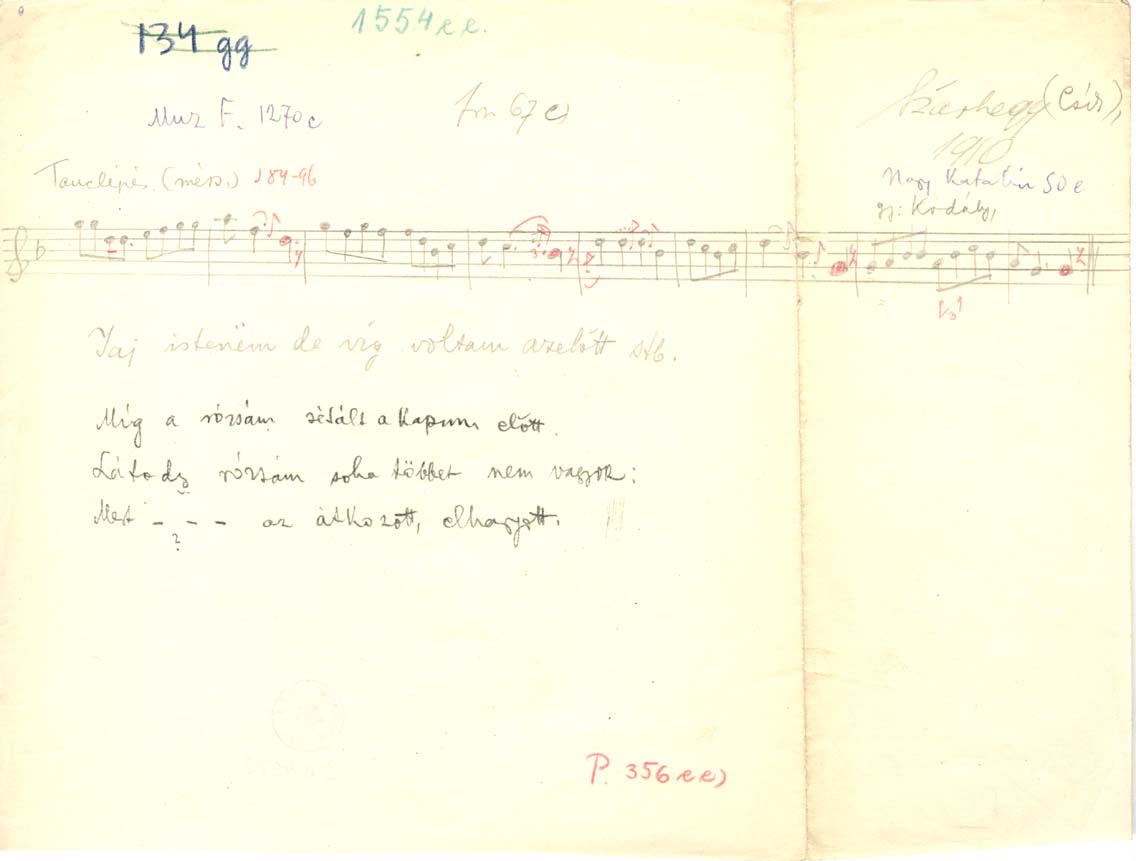 134 gg
1554 e e.
Muz F. 1270 c
67 c)
Szárhegy (Csík),
1910
Nagy Katalin 50 e
gy: Kodály,
Tánclépés. (mérs.) 184-96
Jaj istenëm de víg voltam azelőtt stb.
Míg a rózsám sétált a kapum előtt.
Látody rózsám soha többet nem vagyok:
?
Mert - - - az átkozott, elhagyott.
?
P. 356 e e)